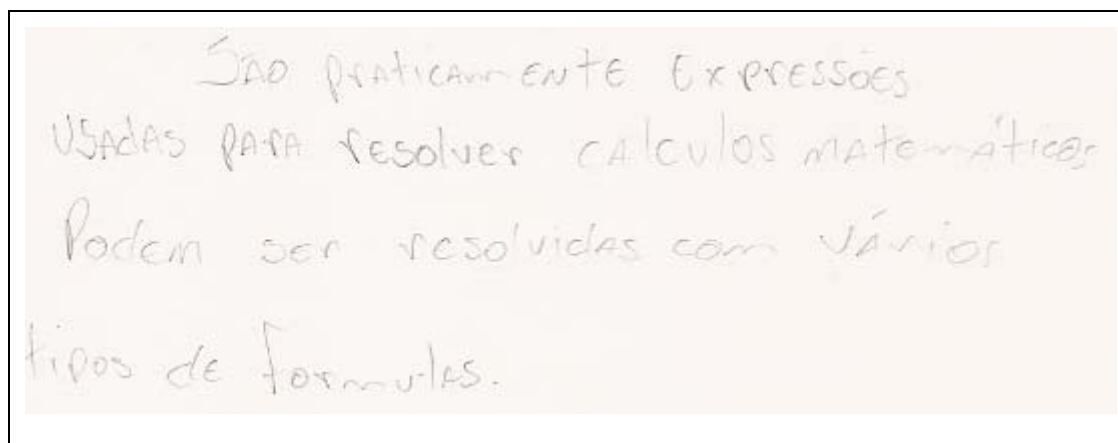 São praticamente Expressões
usadas para resolver calculos matemáticos
Podem ser resolvidas com vários
tipos de formulas.